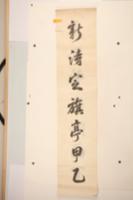 新詩定旗亭甲乙